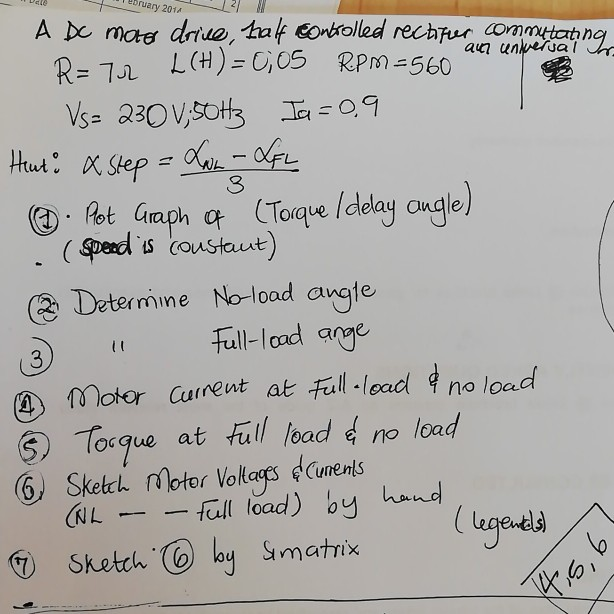 ebruary 2014
2
A DC motor drive, half controlled rectifier commutating
an universal
R = 7Ω L(H) = 0,05 RPM = 560
Vs = 230V,50Hz Ia = 0.9
Hint: α step = αNL - αFL
3
① · Plot Graph of (Torque/delay angle)
· (speed is constant)
② Determine No-load angle
③ " Full-load ange
④ Motor current at Full-load & no load
⑤, Torque at Full load & no load
⑥ Sketch Motor Voltages & Currents
(NL — — Full load) by hand
(legends)
⑦ Sketch ⑥ by Simatrix
4,5,6